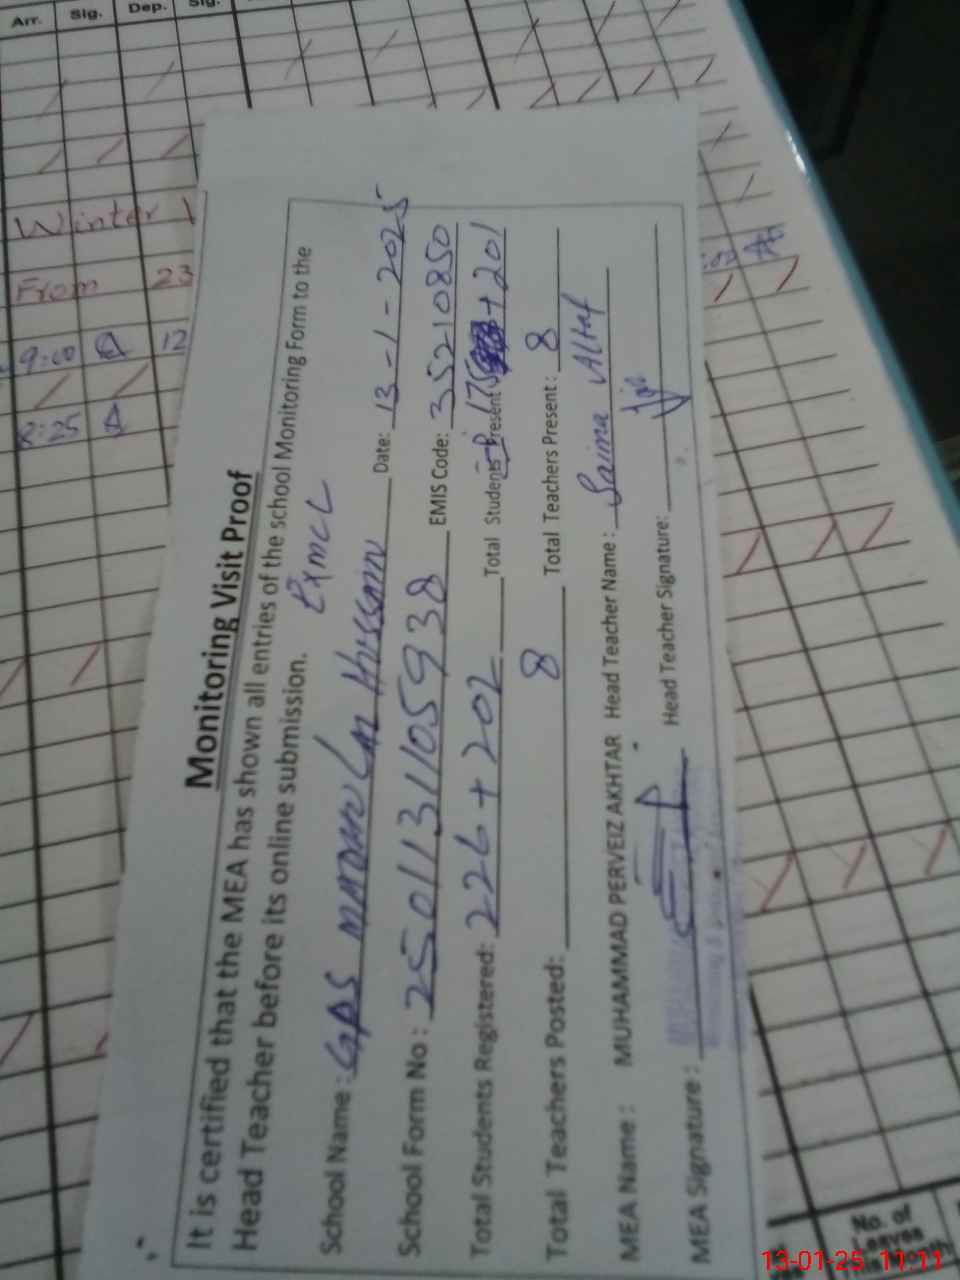 Arr. Sig. Dep. Sig.
Winter
From 23
9:00 12
8:25
Monitoring Visit Proof
It is certified that the MEA has shown all entries of the school Monitoring Form to the
Head Teacher before its online submission.
ExMCL
School Name: GPS Date: 13-1-2025
School Form No: 2501131105938 EMIS Code: 35210850
Total Students Registered: 226+202 Total Students Present +201
Total Teachers Posted: 8 Total Teachers Present: 8
MEA Name: MUHAMMAD PERVEIZ AKHTAR Head Teacher Name: Saima Altaf
MEA Signature: Head Teacher Signature:
No. of
Leaves
13-01-25 11:11